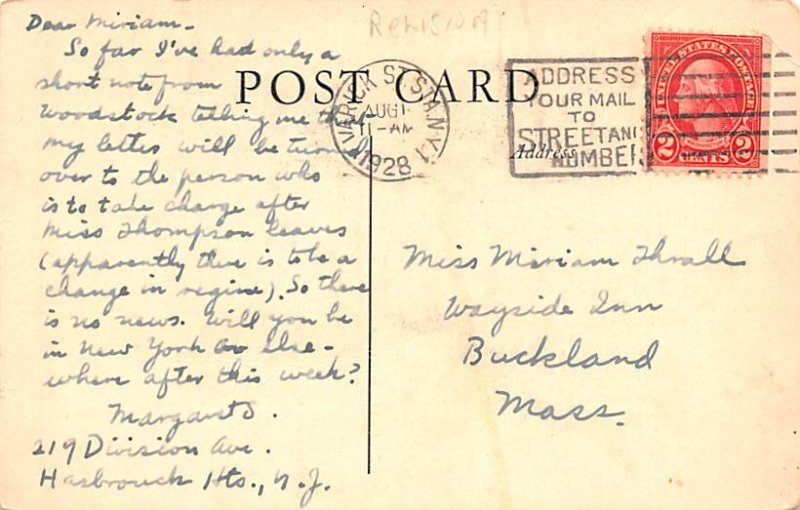 Dear Miriam-
So far I've had only a
short note from
Woodstock telling me that
my letter will be turned
over to the person who
is to take charge after
Miss Thompson leaves
(apparently there is to be a
change in regime). So there
is no news. Will you be
in New York or else-
where after this week?
Margaret S.
219 Division Ave.
Hasbrouck Hts., N.J.
POST CARD
VARICK ST. STA. N.Y. 1
AUG 1
11-AM
1928
ADDRESS
YOUR MAIL
TO
STREET AND
NUMBER
Address
UNITED STATES POSTAGE
WASHINGTON
2 CENTS 2
Miss Miriam Thrall
Wayside Inn
Buckland
Mass.